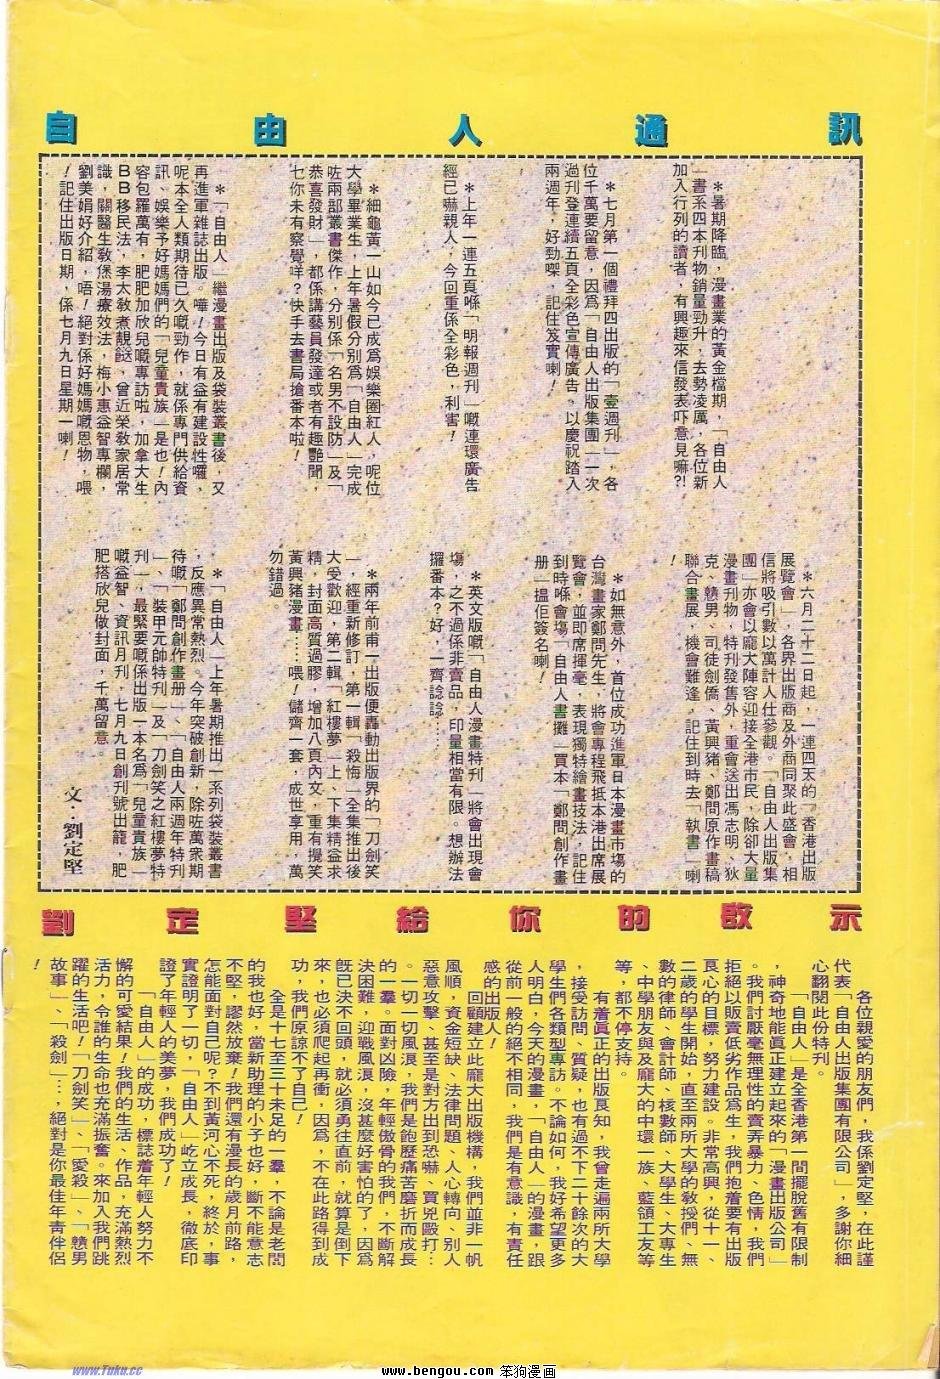 自由人通訊
＊暑期降臨，漫畫業的黃金檔期，「自由人
」書系四本刊物銷量勁升，去勢凌厲，各位新
加入行列的讀者，有興趣來信發表吓意見嘛?!
＊七月第一個禮拜四出版的「壹週刊」，各
位千萬要留意，因爲「自由人出版集團」一次
過刊登連續五頁全彩色宣傳廣告，以慶祝踏入
兩週年，好勁㗎，記住笈實喇！
＊上年一連五頁喺「明報週刊」嘅連環廣告
經已嚇親人，今回重係全彩色，利害！
＊細龜黃一山如今已成爲娛樂圈紅人，呢位
大學畢業生，上年暑假分別爲「自由人」完成
咗兩部叢書傑作，分別係「名男不設防」及「
恭喜發財」，都係講藝員發達或者有趣艷聞，
乜你未有察覺咩？快手去書局搶番本啦！
＊「自由人」繼漫畫出版及袋裝叢書後，又
再進軍雜誌出版。嘩！今日有益有建設性囉，
呢本全人類期待已久嘅勁作，就係專門供給資
訊、娛樂予好媽媽們的「兒童貴族」是也！內
容包羅萬有，肥肥加欣兒嘅專訪啦，加拿大生
ＢＢ移民法，李太敎煮靚餸，曾近榮敎家居常
識，關醫生敎煲湯療效法，梅小惠益智專欄，
劉美娟好介紹，唔！絕對係好媽媽嘅恩物，喂
！記住出版日期，係七月九日星期一喇！
＊六月二十二日起，一連四天的「香港出版
展覽會」，各界出版商及外商同聚此盛會，相
信將吸引數以萬計人仕參觀。「自由人出版集
團」亦會以龐大陣容迎接全港市民，除卻大量
漫畫刊物，特刊發售外，重會送出馮志明、狄
克、戇男、司徒劍僑、黃興豬、鄭問原作畫稿
聯合畫展，機會難逢，記住到時去「執書」喇
！
＊如無意外，首位成功進軍日本漫畫市場的
台灣畫家鄭問先生，將會專程飛抵本港出席展
覽會，並即席揮毫，表現獨特繪畫技法，記住
到時喺會塲「自由人書攤」買本「鄭問創作畫
册」搵佢簽名喇！
＊英文版嘅「自由人漫畫特刊」將會出現會
塲，之不過係非賣品，印量相當有限。想辦法
攞番本？好，一齊諗諗……
＊兩年前甫一出版便轟動出版界的「刀劍笑
」，經重新修訂，第一輯「殺悔」全集推出後
大受歡迎，第二輯「紅樓夢」上、下集精益求
精，封面高質過膠，增加八頁內文，重有攪笑
黃興豬漫畫……喂！儲齊一套，成世享用，萬
勿錯過。
＊「自由人」上年暑期推出一系列袋裝叢書
，反應異常熱烈。今年突破創新，除咗萬衆期
待嘅「鄭問創作畫册」、「自由人兩週年特刊
」、「裝甲元帥特刊」及「刀劍笑之紅樓夢特
刊」，最緊要嘅係出版一本名爲「兒童貴族」
嘅益智、資訊月刊，七月九日創刊號出籠，肥
肥搭欣兒做封面，千萬留意。
文：劉定堅
劉定堅給你的啟示
各位親愛的朋友們，我係劉定堅，在此謹
代表「自由人出版集團有限公司」，多謝你細
心翻閱此份特刊。
「自由人」是全香港第一間擺脫舊有限制
，神奇地能眞正建立起來的「漫畫出版公司」
。我們討厭毫無理性的賣弄暴力、色情，我們
拒絕以販賣低劣作品爲生，我們抱着要有出版
良心的目標，努力建設。非常高興，從十一、
二歲的學生開始，直至兩所大學的敎授們、無
數的律師、會計師、核數師、大學生、大專生
、中學朋友與及龐大的中環一族、藍領工友等
等，都不停支持。
有着眞正的出版良知，我曾走遍兩所大學
，接受訪問、質疑，也有過不下二十餘次的大
學生們各類型專訪。不論如何，我好希望更多
人明白，今天的漫畫，「自由人」的漫畫，跟
從前一般的絕不相同，我們是有意識，有責任
感的出版人！
回顧建立此龐大出版機構，我們並非一帆
風順，資金短缺、法律問題、人心轉向、別人
惡意攻擊、甚至是對方出到恐嚇、買兇毆打…
。一切一切風浪，我們是飽歷痛苦磨折而成長
的一羣。面對凶險，年輕傲骨的我們，不斷解
決困難，迎戰風浪，沒甚麼好害怕的了，因爲
旣已決不回頭，就必須勇往直前，就算是倒下
來，也必須爬起再衝，因爲，不在此路得到成
功，我們原諒不了自己！
全是十七至三十未足的一羣，不論是老闆
的我也好，當新助理的小子也好，斷不能意志
不堅，謬然放棄！我們還有漫長的歲月前路，
怎能面對自己呢？不到黃河心不死，終於，事
實證明了一切，「自由人」屹立成長，徹底印
證了年輕人的美夢，我們成功了！
「自由人」的成功，標誌着年輕人努力不
懈的可愛結果！我們的生活、作品，充滿熱烈
活力，令誰的生命也充滿振奮。來加入我們跳
躍的生活吧！「刀劍笑」、「愛殺」、「戇男
故事」、「殺劍」…，絕對是你最佳年靑伴侶
！
www.Tuku.cc
www.bengou.com 笨狗漫画